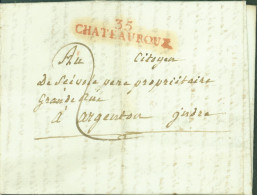 35
CHATEAUROUX
Au Citoyen
De Seivois pere propriétaire
Grande Rue
A argenton indre